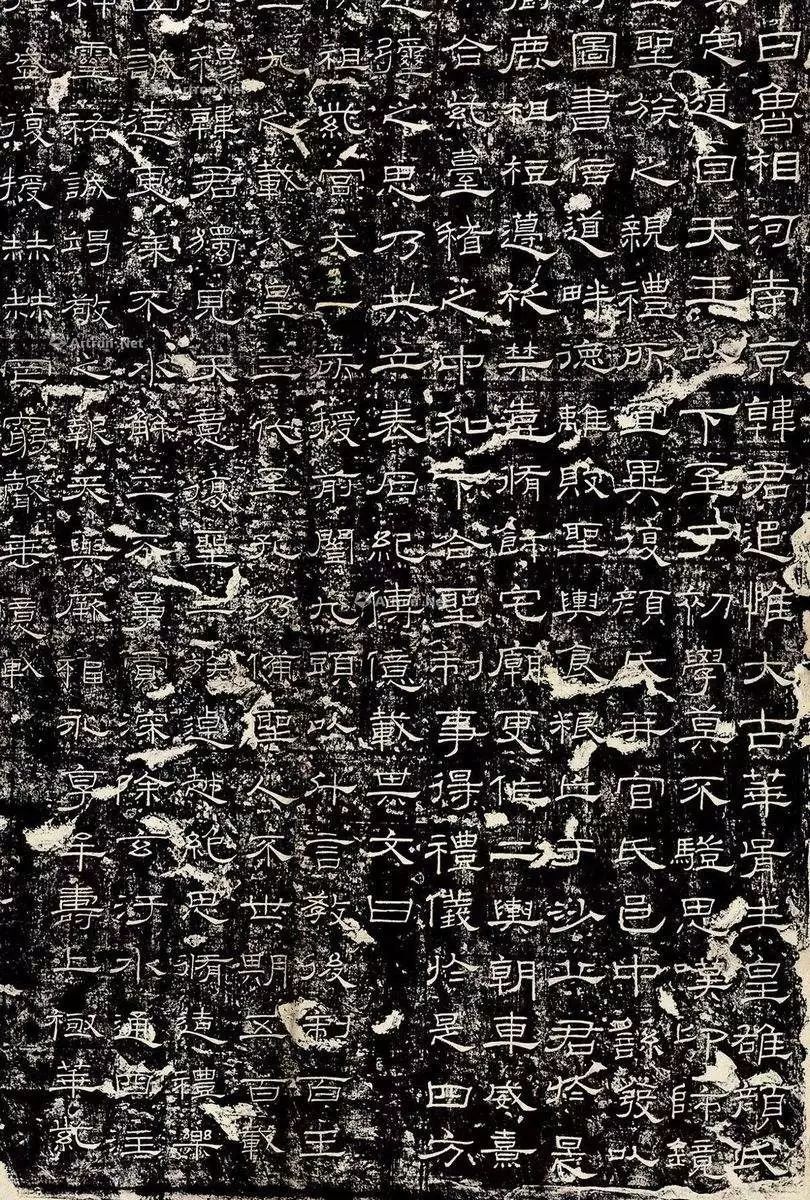 日魯相河南京韓君追惟大古華胥生皇雄顏
定道自天王以下至于初學莫不駥思嘆卬師鏡
聖族之親禮所宜異復顏氏并官氏邑中繇發以
圖書倍道畔德離敗聖輿食糧亡于沙丘君於是
鹿柤梪籩柉禁壺脩飾宅廟更作二輿朝車威熹
合紫臺稽之中和下合聖制事得禮儀於是四方
彌之思乃共立表石紀傳億載其文曰
祖紫宮大一所授前闓九頭以什言教後制百王
三九之載八皇三代至孔乃備聖人不世期五百載
穆韓君獨見天意復聖二族逴越絕思脩造禮樂
出誠造更漆不水解工不爭賈深除玄汙水通四注
神靈祐誠竭敬之報天與厥福永享牟壽上極華紫
盛復授赫赫罔窮聲垂億載